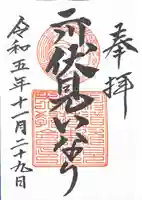 奉拝
伏見いなり
令和五年十一月二十九日